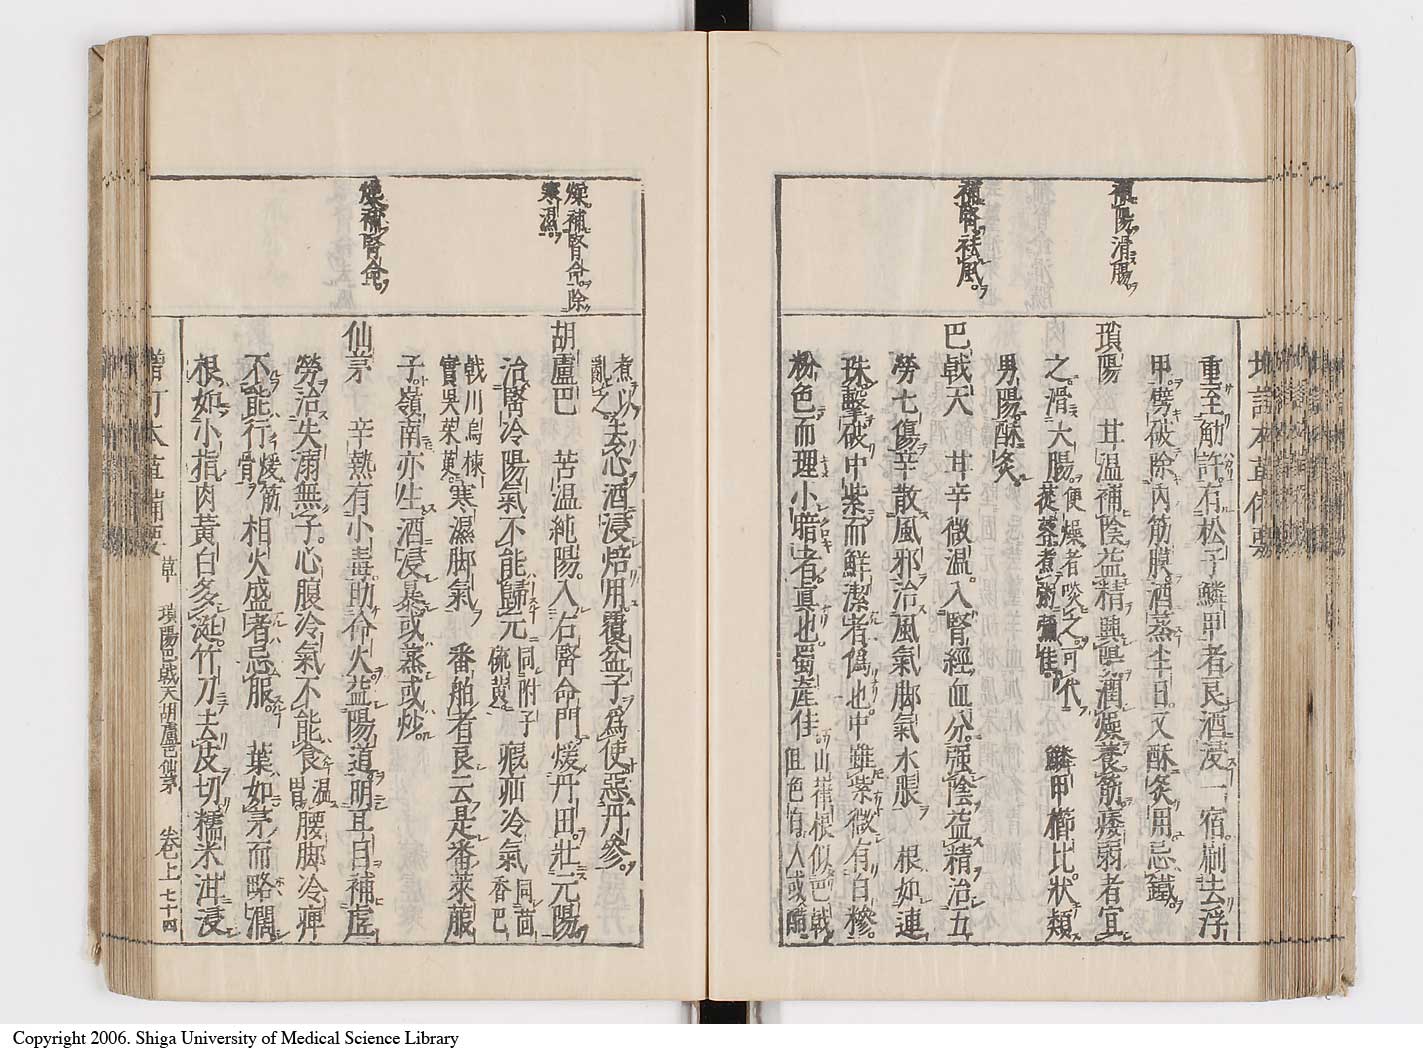 補陽滑腸
補腎祛風
重至觔許有松子鱗甲者良酒浸一宿刷去浮
甲劈破除內筋膜酒蒸半日又酥炙用忌鐵
瑣陽 甘温補陰益精興陽潤燥養筋痿弱者宜
之滑大腸便燥者啖之可代蓯蓉煮粥彌佳 鱗甲櫛比狀類
男陽酥炙
巴戟天 甘辛微温入腎經血分強陰益精治五
勞七傷辛散風邪治風氣脚氣水脹 根如連
珠擊破中紫而鮮潔者僞也中雖紫微有白糝
粉色而理小暗者眞也蜀產佳山葎根似巴戟但色白人或醋
燥補腎命除
寒濕
燥補腎命
煮以亂之去心酒浸焙用覆盆子爲使惡丹參
胡盧巴 苦温純陽入右腎命門煖丹田壯元陽
治腎冷陽氣不能歸元同附子硫黄瘕疝冷氣同茴香巴
戟川烏楝實吳茱萸寒濕脚氣 番舶者良云是番萊菔
子嶺南亦生酒浸暴或蒸或炒
仙茅 辛熱有小毒助命火益陽道明耳目補虛
勞治失溺無子心腹冷氣不能食温胃腰脚冷痺
不能行煖筋骨相火盛者忌服 葉如茅而略濶
根如小指肉黄白多涎竹刀去皮切糯米泔浸
增訂本草備要 草 瑣陽巴戟天胡盧巴仙茅 卷上 七十四